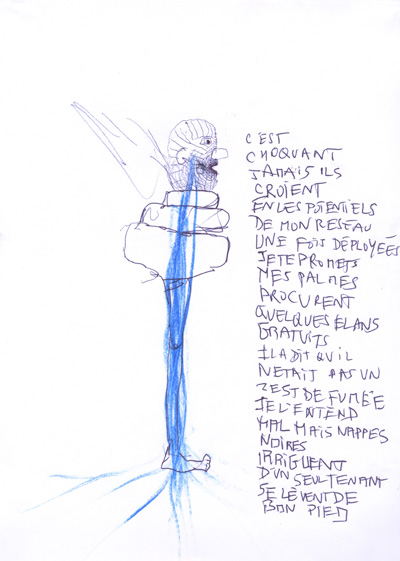 C'EST
CHOQUANT
JAMAIS ILS
CROIENT
EN LES POTENTIELS
DE MON RESEAU
UNE FOIS DÉPLOYÉES
JE TE PROMETS
MES PALMES
PROCURENT
QUELQUES ÉLANS
GRATUITS
IL A DIT QU'IL
N'ETAIT PAS UN
ZEST DE FUMÉE
JE L'ENTEND
MAL MAIS NAPPES
NOIRES
IRRIGUENT
D'UN SEUL TENANT
SE LÈVENT DE
BON PIED